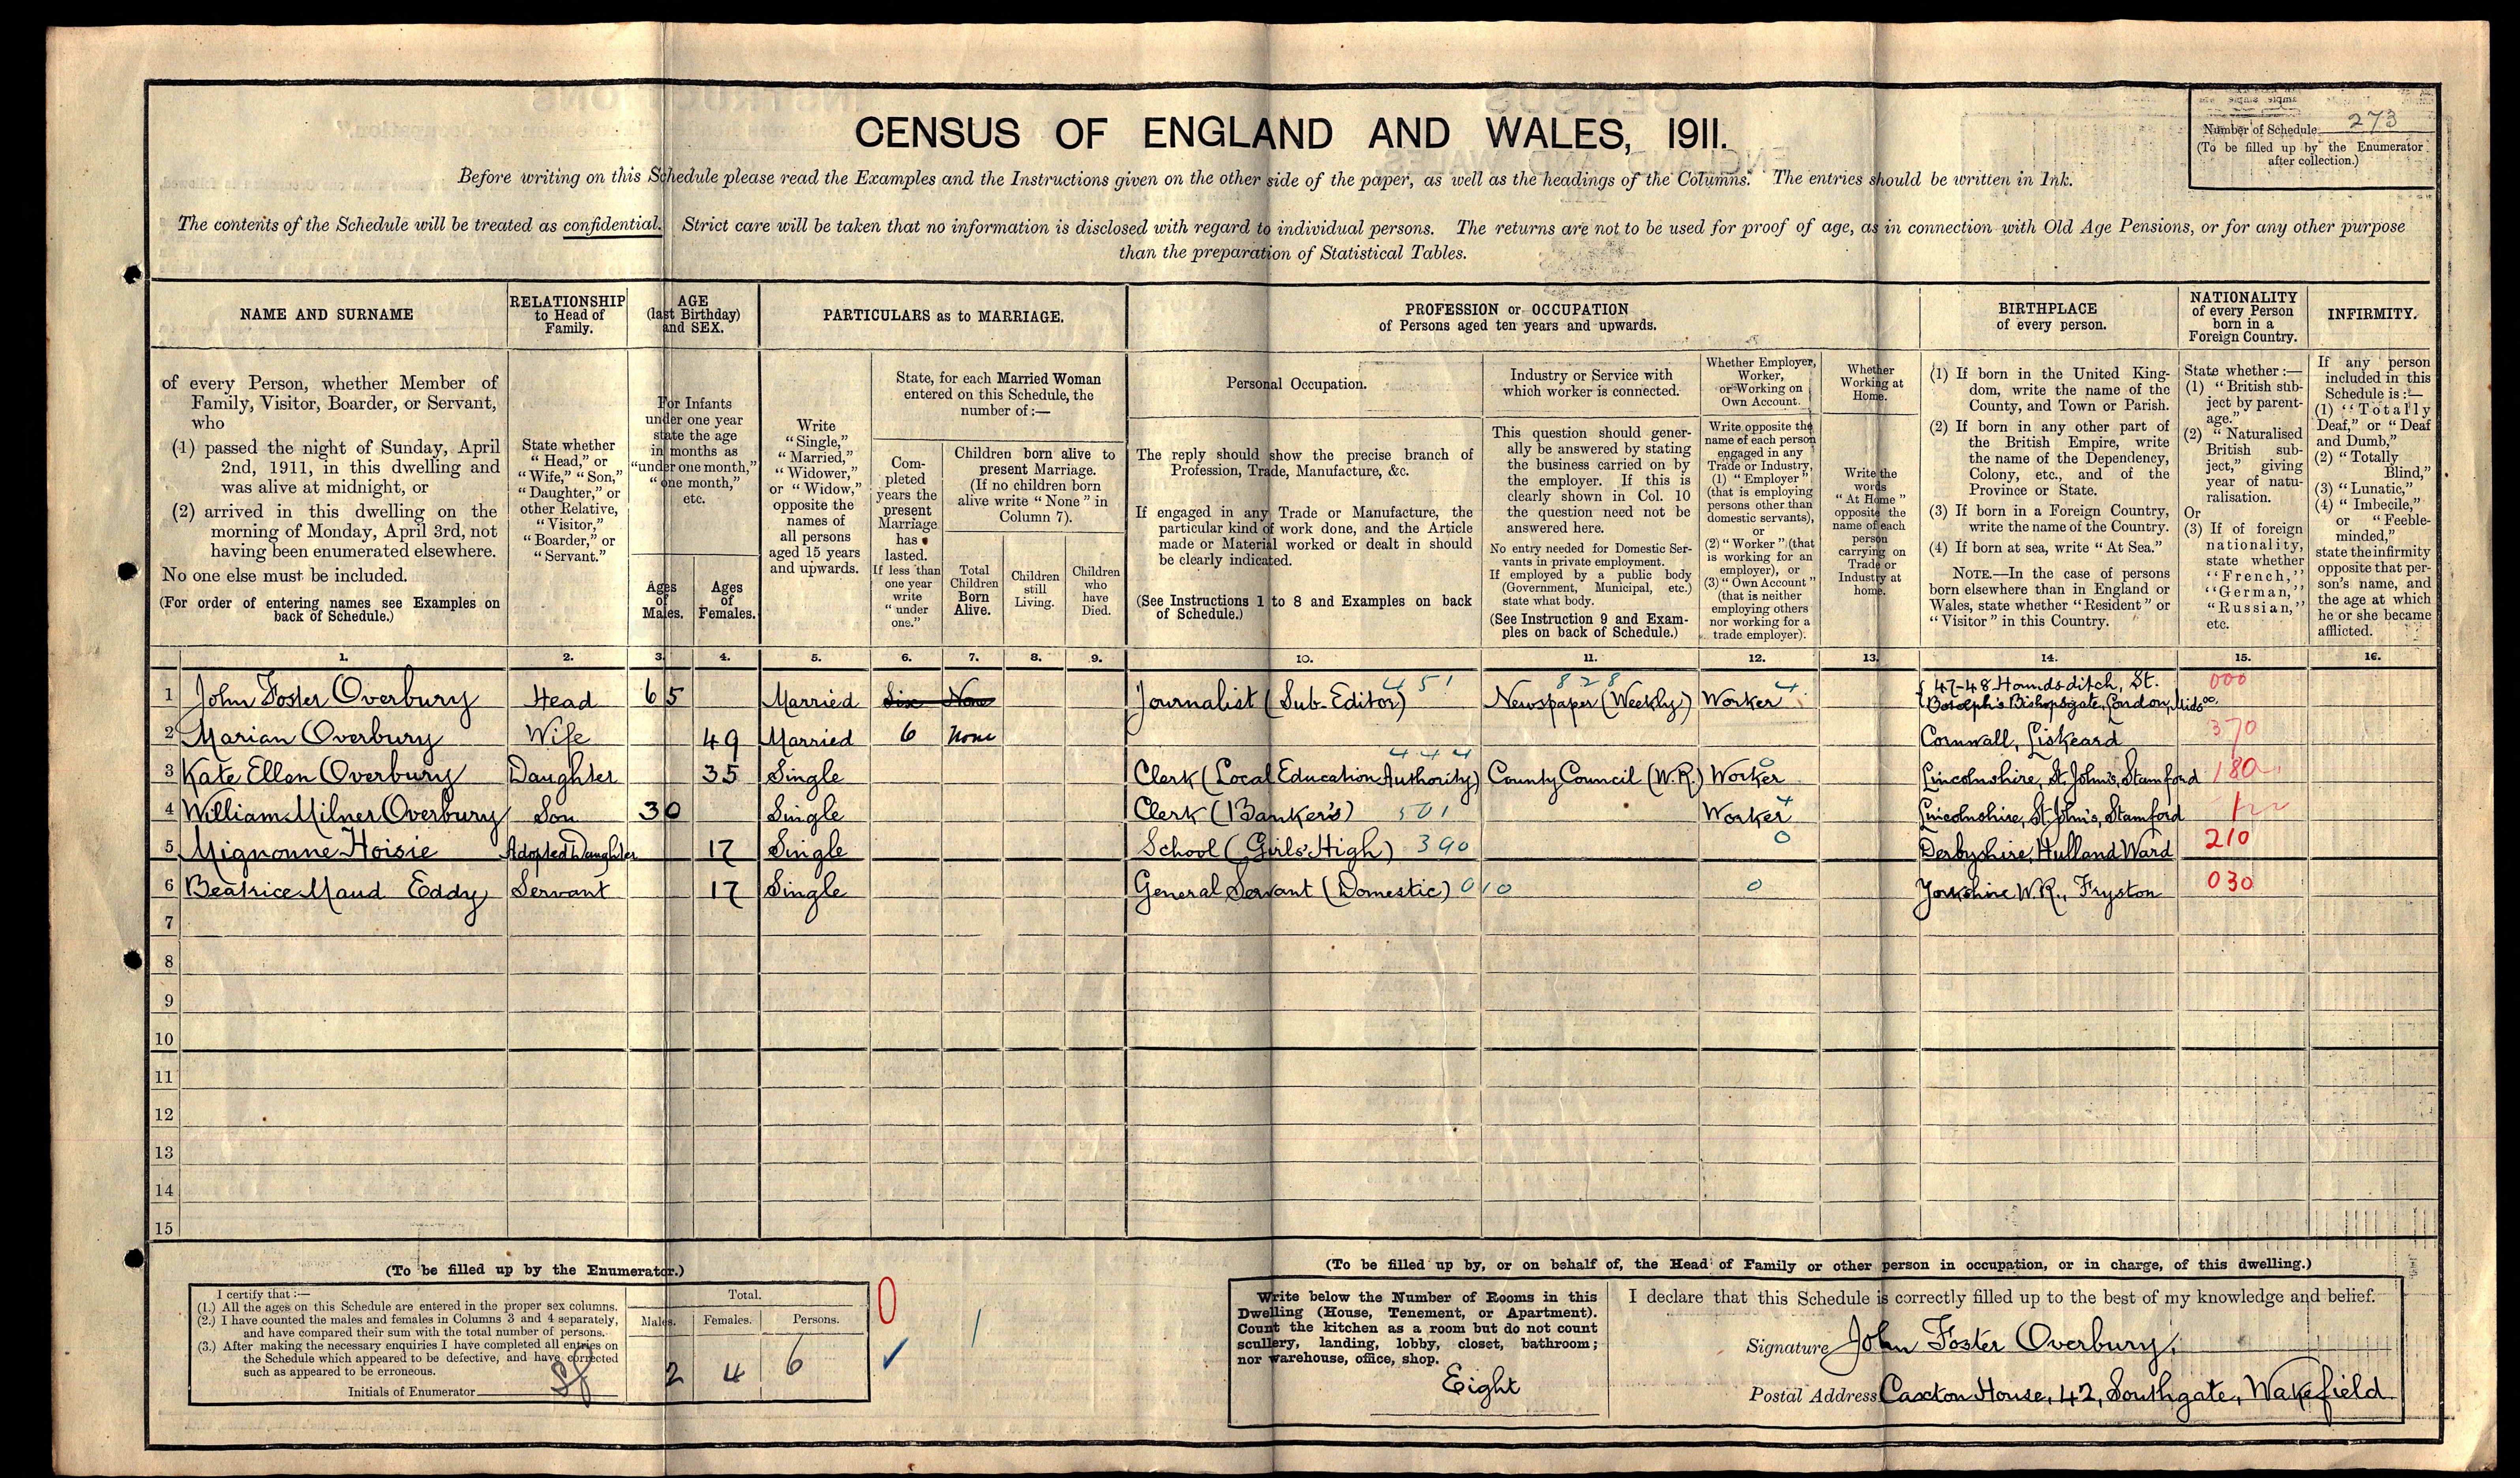 CENSUS OF ENGLAND AND WALES, 1911.
Number of Schedule 273
(To be filled up by the Enumerator
after collection.)
Before writing on this Schedule please read the Examples and the Instructions given on the other side of the paper, as well as the headings of the Columns. The entries should be written in Ink.
The contents of the Schedule will be treated as confidential. Strict care will be taken that no information is disclosed with regard to individual persons. The returns are not to be used for proof of age, as in connection with Old Age Pensions, or for any other purpose
than the preparation of Statistical Tables.
NAME AND SURNAME
of every Person, whether Member of
Family, Visitor, Boarder, or Servant,
who
(1) passed the night of Sunday, April
2nd, 1911, in this dwelling and
was alive at midnight, or
(2) arrived in this dwelling on the
morning of Monday, April 3rd, not
having been enumerated elsewhere.
No one else must be included.
(For order of entering names see Examples on
back of Schedule.)
RELATIONSHIP
to Head of
Family.
State whether
"Head," or
"Wife," "Son,"
"Daughter," or
other Relative,
"Visitor,"
"Boarder," or
"Servant."
AGE
(last Birthday)
and SEX.
For Infants
under one year
state the age
in months as
"under one month,"
"one month,"
etc.
Ages
of
Males.
Ages
of
Females.
PARTICULARS as to MARRIAGE.
Write
"Single,"
"Married,"
"Widower,"
or "Widow,"
opposite the
names of
all persons
aged 15 years
and upwards.
State, for each Married Woman
entered on this Schedule, the
number of:—
Com-
pleted
years the
present
Marriage
has
lasted.
If less than
one year
write
"under
one."
Children born alive to
present Marriage.
(If no children born
alive write "None" in
Column 7).
Total
Children
Born
Alive.
Children
still
Living.
Children
who
have
Died.
PROFESSION or OCCUPATION
of Persons aged ten years and upwards.
Personal Occupation.
The reply should show the precise branch of
Profession, Trade, Manufacture, &c.
If engaged in any Trade or Manufacture, the
particular kind of work done, and the Article
made or Material worked or dealt in should
be clearly indicated.
(See Instructions 1 to 8 and Examples on back
of Schedule.)
Industry or Service with
which worker is connected.
This question should gener-
ally be answered by stating
the business carried on by
the employer. If this is
clearly shown in Col. 10
the question need not be
answered here.
No entry needed for Domestic Ser-
vants in private employment.
If employed by a public body
(Government, Municipal, etc.)
state what body.
(See Instruction 9 and Exam-
ples on back of Schedule.)
Whether Employer,
Worker,
or Working on
Own Account.
Write opposite the
name of each person
engaged in any
Trade or Industry,
(1) "Employer"
(that is employing
persons other than
domestic servants),
or
(2) "Worker" (that
is working for an
employer), or
(3) "Own Account"
(that is neither
employing others
nor working for a
trade employer).
Whether
Working at
Home.
Write the
words
"At Home"
opposite the
name of each
person
carrying on
Trade or
Industry at
home.
BIRTHPLACE
of every person.
(1) If born in the United King-
dom, write the name of the
County, and Town or Parish.
(2) If born in any other part of
the British Empire, write
the name of the Dependency,
Colony, etc., and of the
Province or State.
(3) If born in a Foreign Country,
write the name of the Country.
(4) If born at sea, write "At Sea."
NOTE.—In the case of persons
born elsewhere than in England or
Wales, state whether "Resident" or
"Visitor" in this Country.
NATIONALITY
of every Person
born in a
Foreign Country.
State whether:—
(1) "British sub-
ject by parent-
age."
(2) "Naturalised
British sub-
ject," giving
year of natu-
ralisation.
Or
(3) If of foreign
nationality,
state whether
"French,"
"German,"
"Russian,"
etc.
INFIRMITY.
If any person
included in this
Schedule is:—
(1) "Totally
Deaf," or "Deaf
and Dumb,"
(2) "Totally
Blind,"
(3) "Lunatic,"
(4) "Imbecile,"
or "Feeble-
minded,"
state the infirmity
opposite that per-
son's name, and
the age at which
he or she became
afflicted.
1. 2. 3. 4. 5. 6. 7. 8. 9. 10. 11. 12. 13. 14. 15. 16.
451 828 4 47-48 Houndsditch, St. 000
1 John Foster Overbury Head 65 Married Six None Journalist (Sub-Editor) Newspaper (Weekly) Worker Botolph's Bishopsgate, London, Midsx.
2 Marian Overbury Wife 49 Married 6 None Cornwall, Liskeard 370
444 0
3 Kate Ellen Overbury Daughter 35 Single Clerk (Local Education Authority) County Council (W.R.) Worker Lincolnshire, St. John's, Stamford 180
4 William Milner Overbury Son 30 Single Clerk (Banker's) 501 Worker 4 Lincolnshire, St. John's, Stamford
5 Mignonne Hoisie Adopted Daughter 17 Single School (Girls' High) 390 0 Derbyshire, Hulland Ward 210
6 Beatrice Maud Eddy Servant 17 Single General Servant (Domestic) 010 0 Yorkshire W.R., Fryston 030
7
8
9
10
11
12
13
14
15
(To be filled up by the Enumerator.)
I certify that:—
(1.) All the ages on this Schedule are entered in the proper sex columns.
(2.) I have counted the males and females in Columns 3 and 4 separately,
and have compared their sum with the total number of persons.
(3.) After making the necessary enquiries I have completed all entries on
the Schedule which appeared to be defective, and have corrected
such as appeared to be erroneous.
Initials of Enumerator
Total.
Males. Females. Persons.
2 4 6
0
1
(To be filled up by, or on behalf of, the Head of Family or other person in occupation, or in charge, of this dwelling.)
Write below the Number of Rooms in this
Dwelling (House, Tenement, or Apartment).
Count the kitchen as a room but do not count
scullery, landing, lobby, closet, bathroom;
nor warehouse, office, shop.
Eight
I declare that this Schedule is correctly filled up to the best of my knowledge and belief.
Signature John Foster Overbury.
Postal Address Caxton House, 42, Southgate, Wakefield